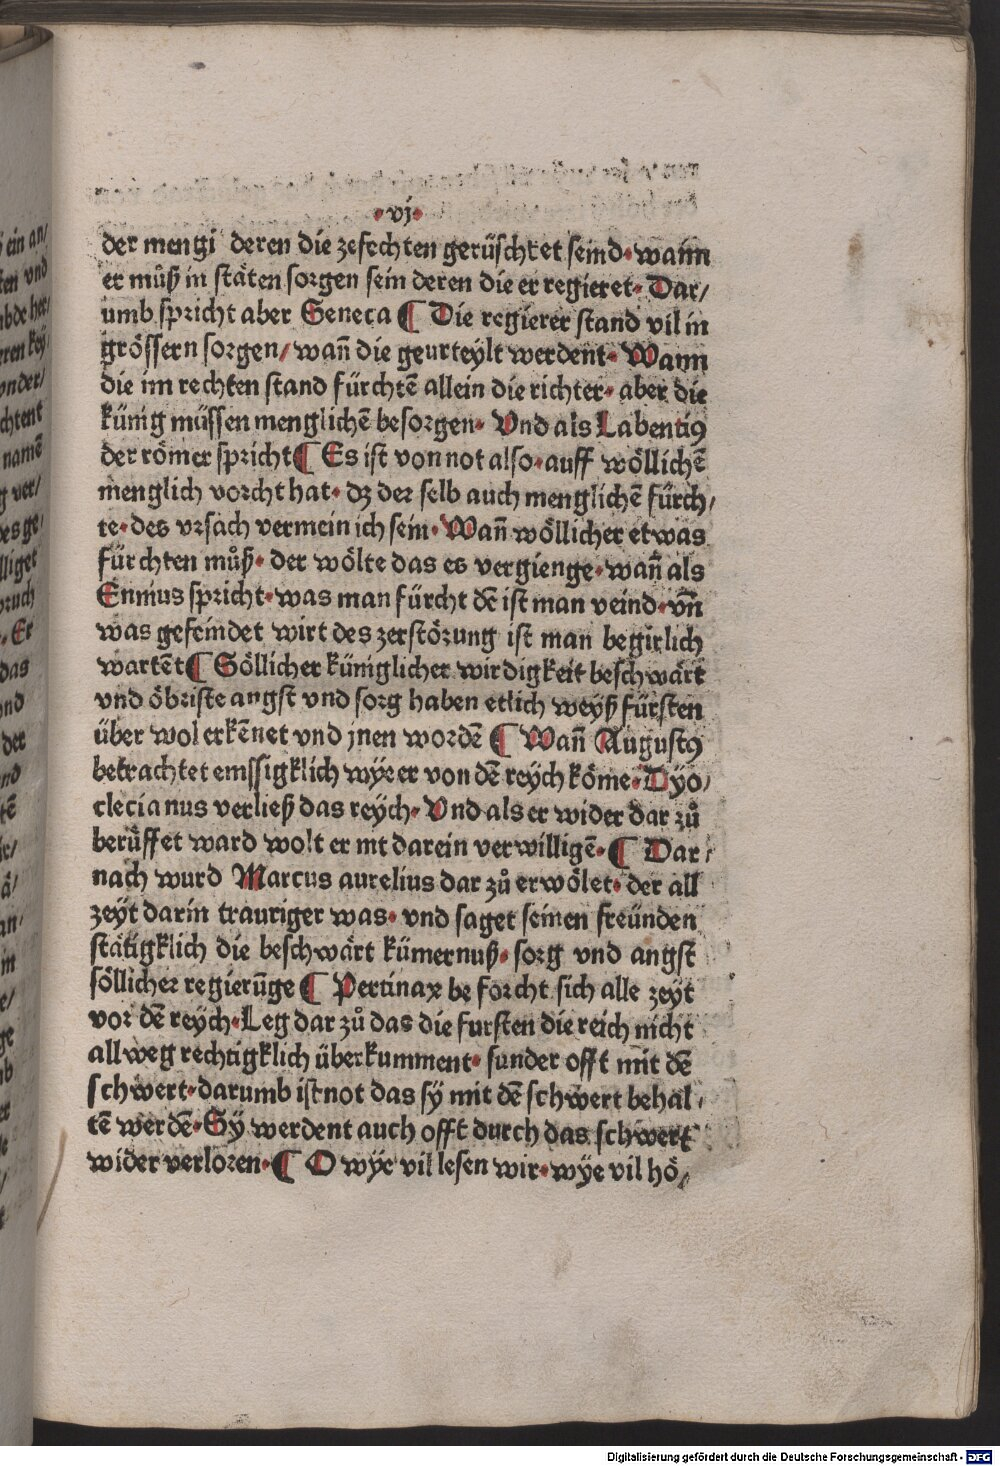 ·vj·
der mengi deren die zefechten gerüschtet seind· wann
er můß in stäten sorgen sein deren die er regieret· Dar/
umb spricht aber Seneca ¶ Die regierer stand vil in
grössern sorgen/ wañ die geurteylt werdent· Wann
die im rechten stand fürchtē allein die richter· aber die
künig müssen menglichē besorgen· Vnd als Labentiꝰ
der römer spricht ¶ Es ist von not also· auff wöllichē
menglich vorcht hat· dz der selb auch menglichē fürch/
te· des vrsach vermein ich sein· Wañ wöllicher etwas
fürchten můß· der wölte das es vergienge· wañ als
Ennius spricht· was man fürcht dē ist man veind· vñ
was gefeindet wirt des zerstörung ist man begirlich
wartēt ¶ Söllicher küniglicher wirdigkeit beschwärt
vnd öbriste angst vnd sorg haben etlich weyß fürsten
über wol erkēnet vnd jnen wordē ¶ Wañ Augustꝰ
betrachtet emssigklich wÿe er von dē reÿch köme· Dÿo/
clecianus verließ das reÿch· Vnd als er wider dar zů
berüffet ward wolt er nit darein verwilligē· ¶ Dar/
nach wurd Marcus aurelius dar zů erwölet· der all
zeÿt darin trauriger was· vnd saget seinen freünden
stätigklich die beschwärt kümernuß· sorg vnd angst
söllicher regierūge ¶ Pertinax be forcht sich alle zeÿt
vor dē reÿch· Leg dar zů das die fursten die reich nicht
allweg rechtigklich überkumment· sunder offt mit dē
schwert· darumb ist not das sÿ mit dē schwert behal/
tē werdē· Sÿ werdent auch offt durch das schwert
wider verloren· ¶ O wÿe vil lesen wir· wÿe vil hö/
Digitalisierung gefördert durch die Deutsche Forschungsgemeinschaft - DFG